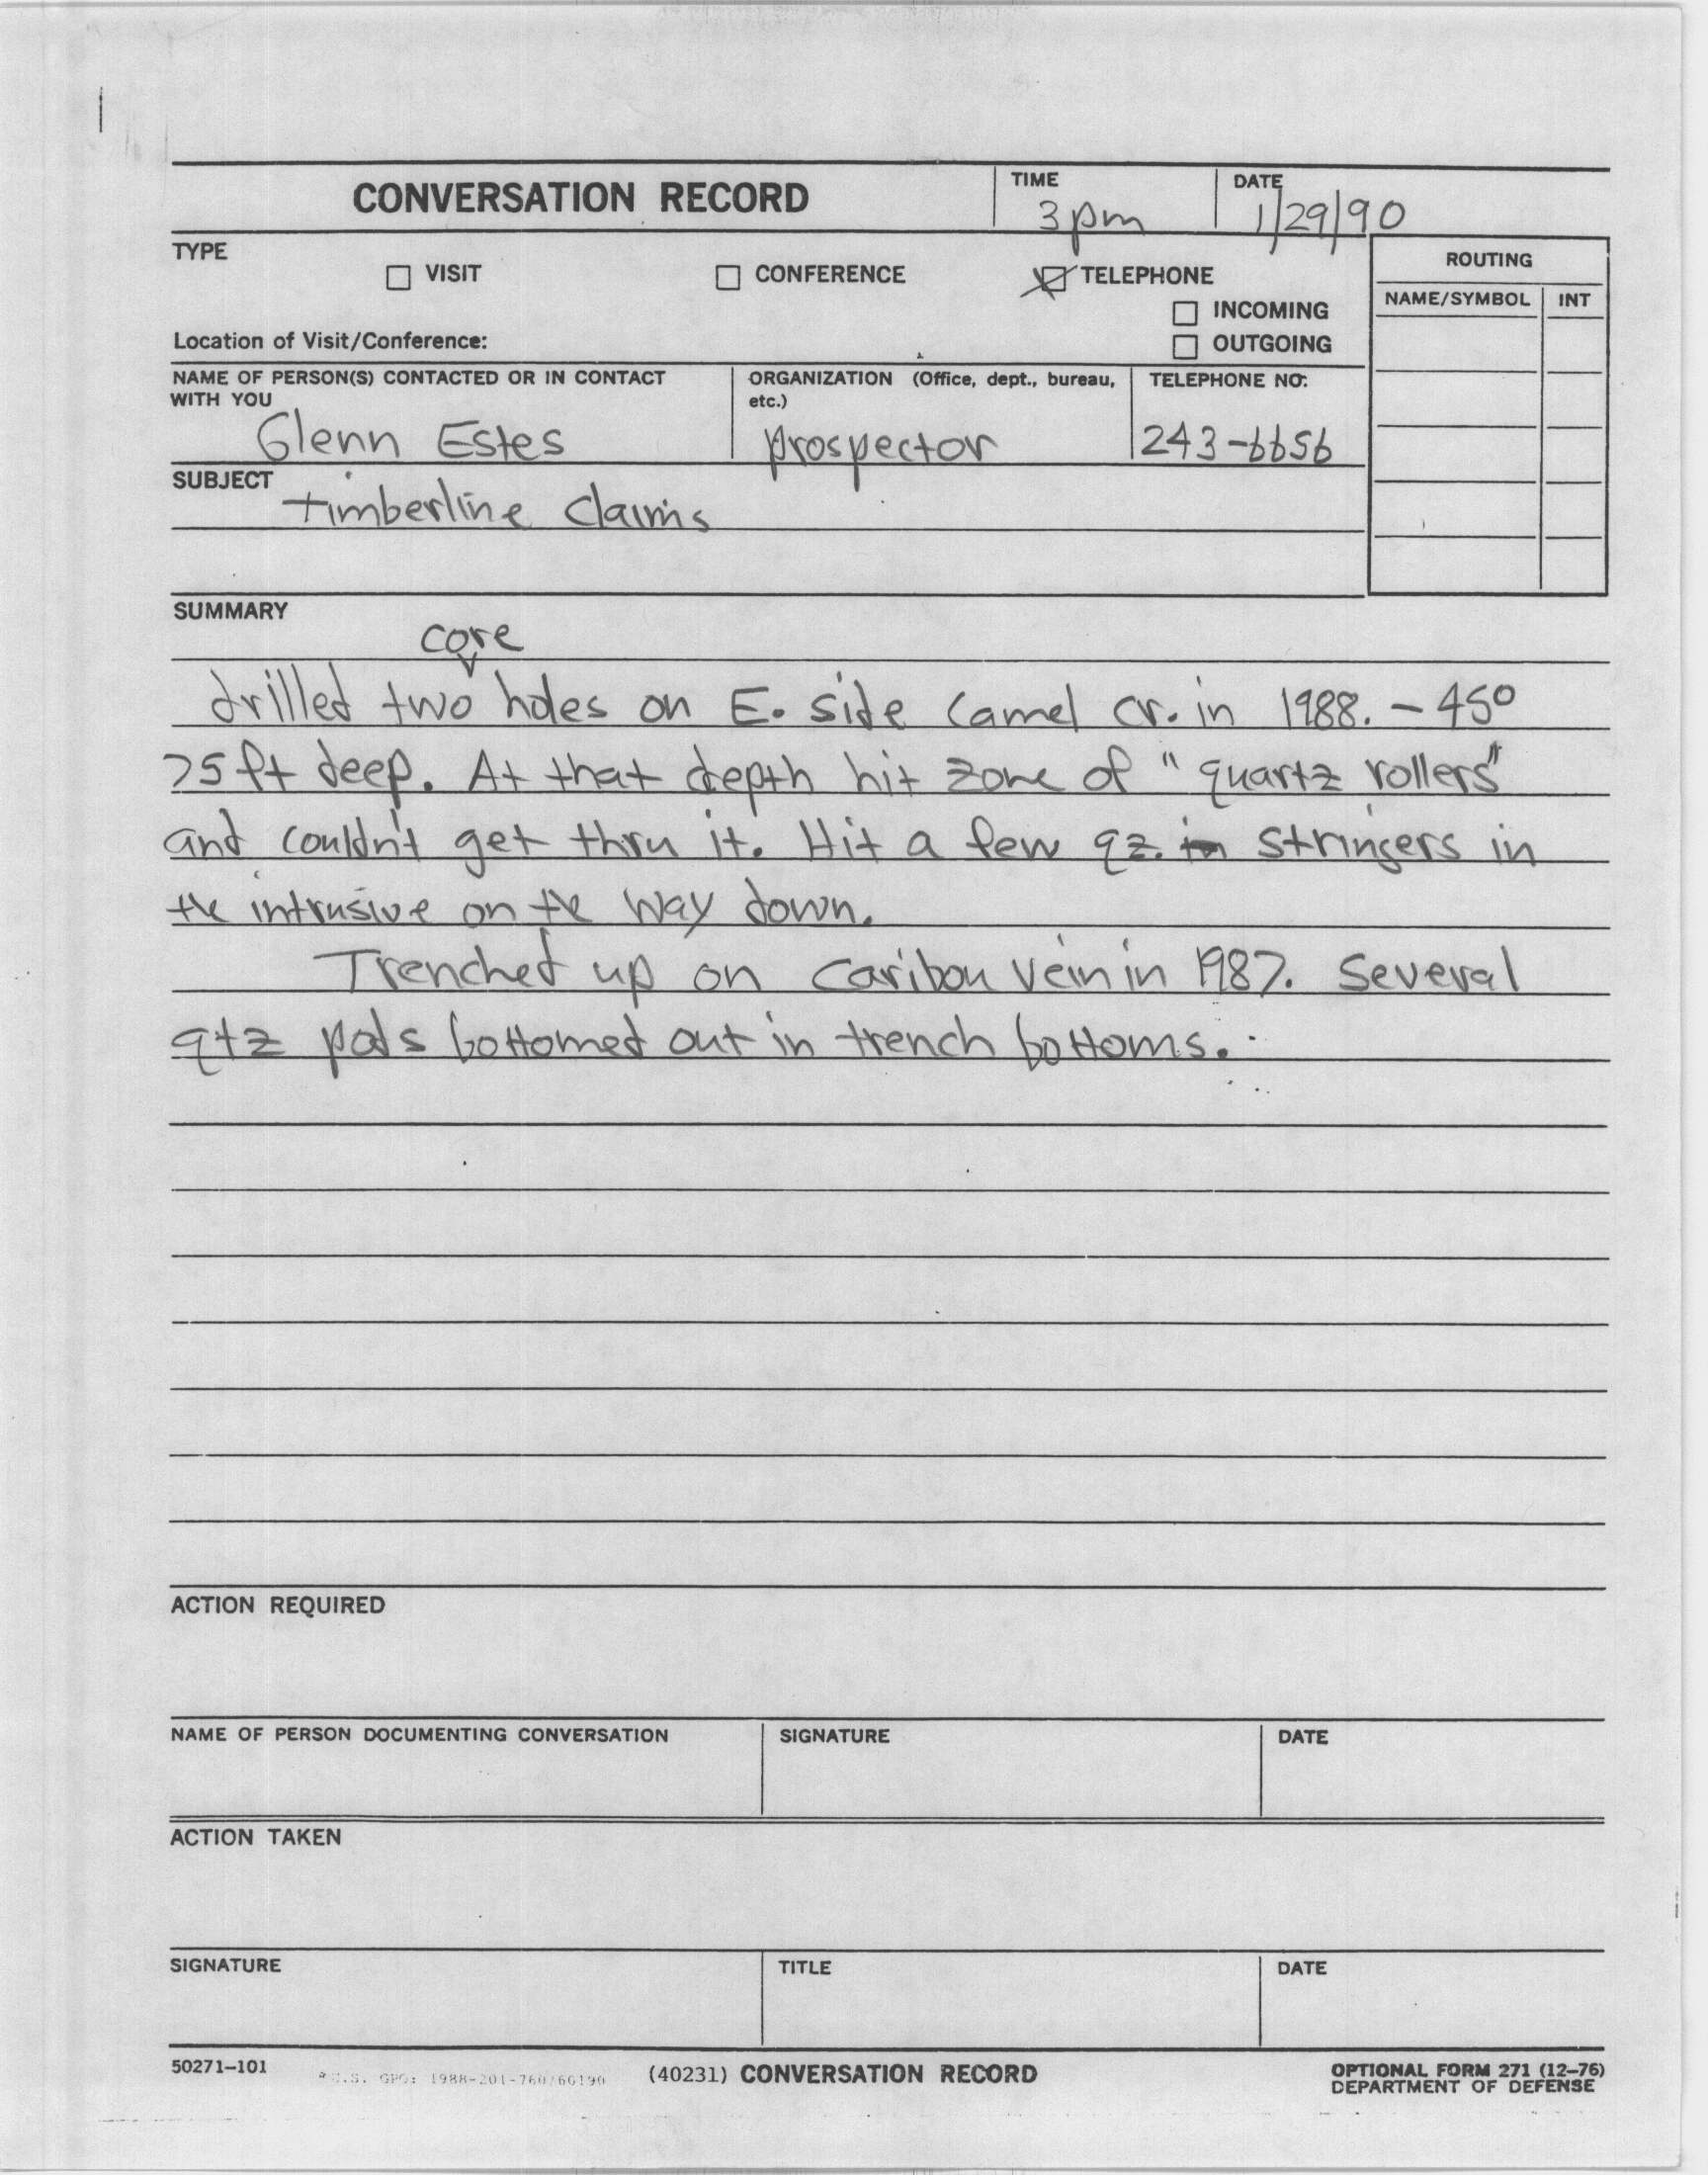 CONVERSATION RECORD
TIME
3pm
DATE
1/29/90
TYPE
VISIT
CONFERENCE
TELEPHONE
INCOMING
OUTGOING
ROUTING
NAME/SYMBOL INT
Location of Visit/Conference:
NAME OF PERSON(S) CONTACTED OR IN CONTACT
WITH YOU
Glenn Estes
ORGANIZATION (Office, dept., bureau,
etc.)
prospector
TELEPHONE NO:
243-6656
SUBJECT
timberline claims
SUMMARY
core
drilled two holes on E. side Camel cr. in 1988. - 45°
75 ft deep. At that depth hit zone of "quartz rollers"
and couldn't get thru it. Hit a few qz. in stringers in
the intrusive on the way down.
Trenched up on caribou vein in 1987. Several
qtz pods bottomed out in trench bottoms.
ACTION REQUIRED
NAME OF PERSON DOCUMENTING CONVERSATION
SIGNATURE
DATE
ACTION TAKEN
SIGNATURE
TITLE
DATE
50271-101
GPO: 1988-201-760/60190
(40231) CONVERSATION RECORD
OPTIONAL FORM 271 (12-76)
DEPARTMENT OF DEFENSE